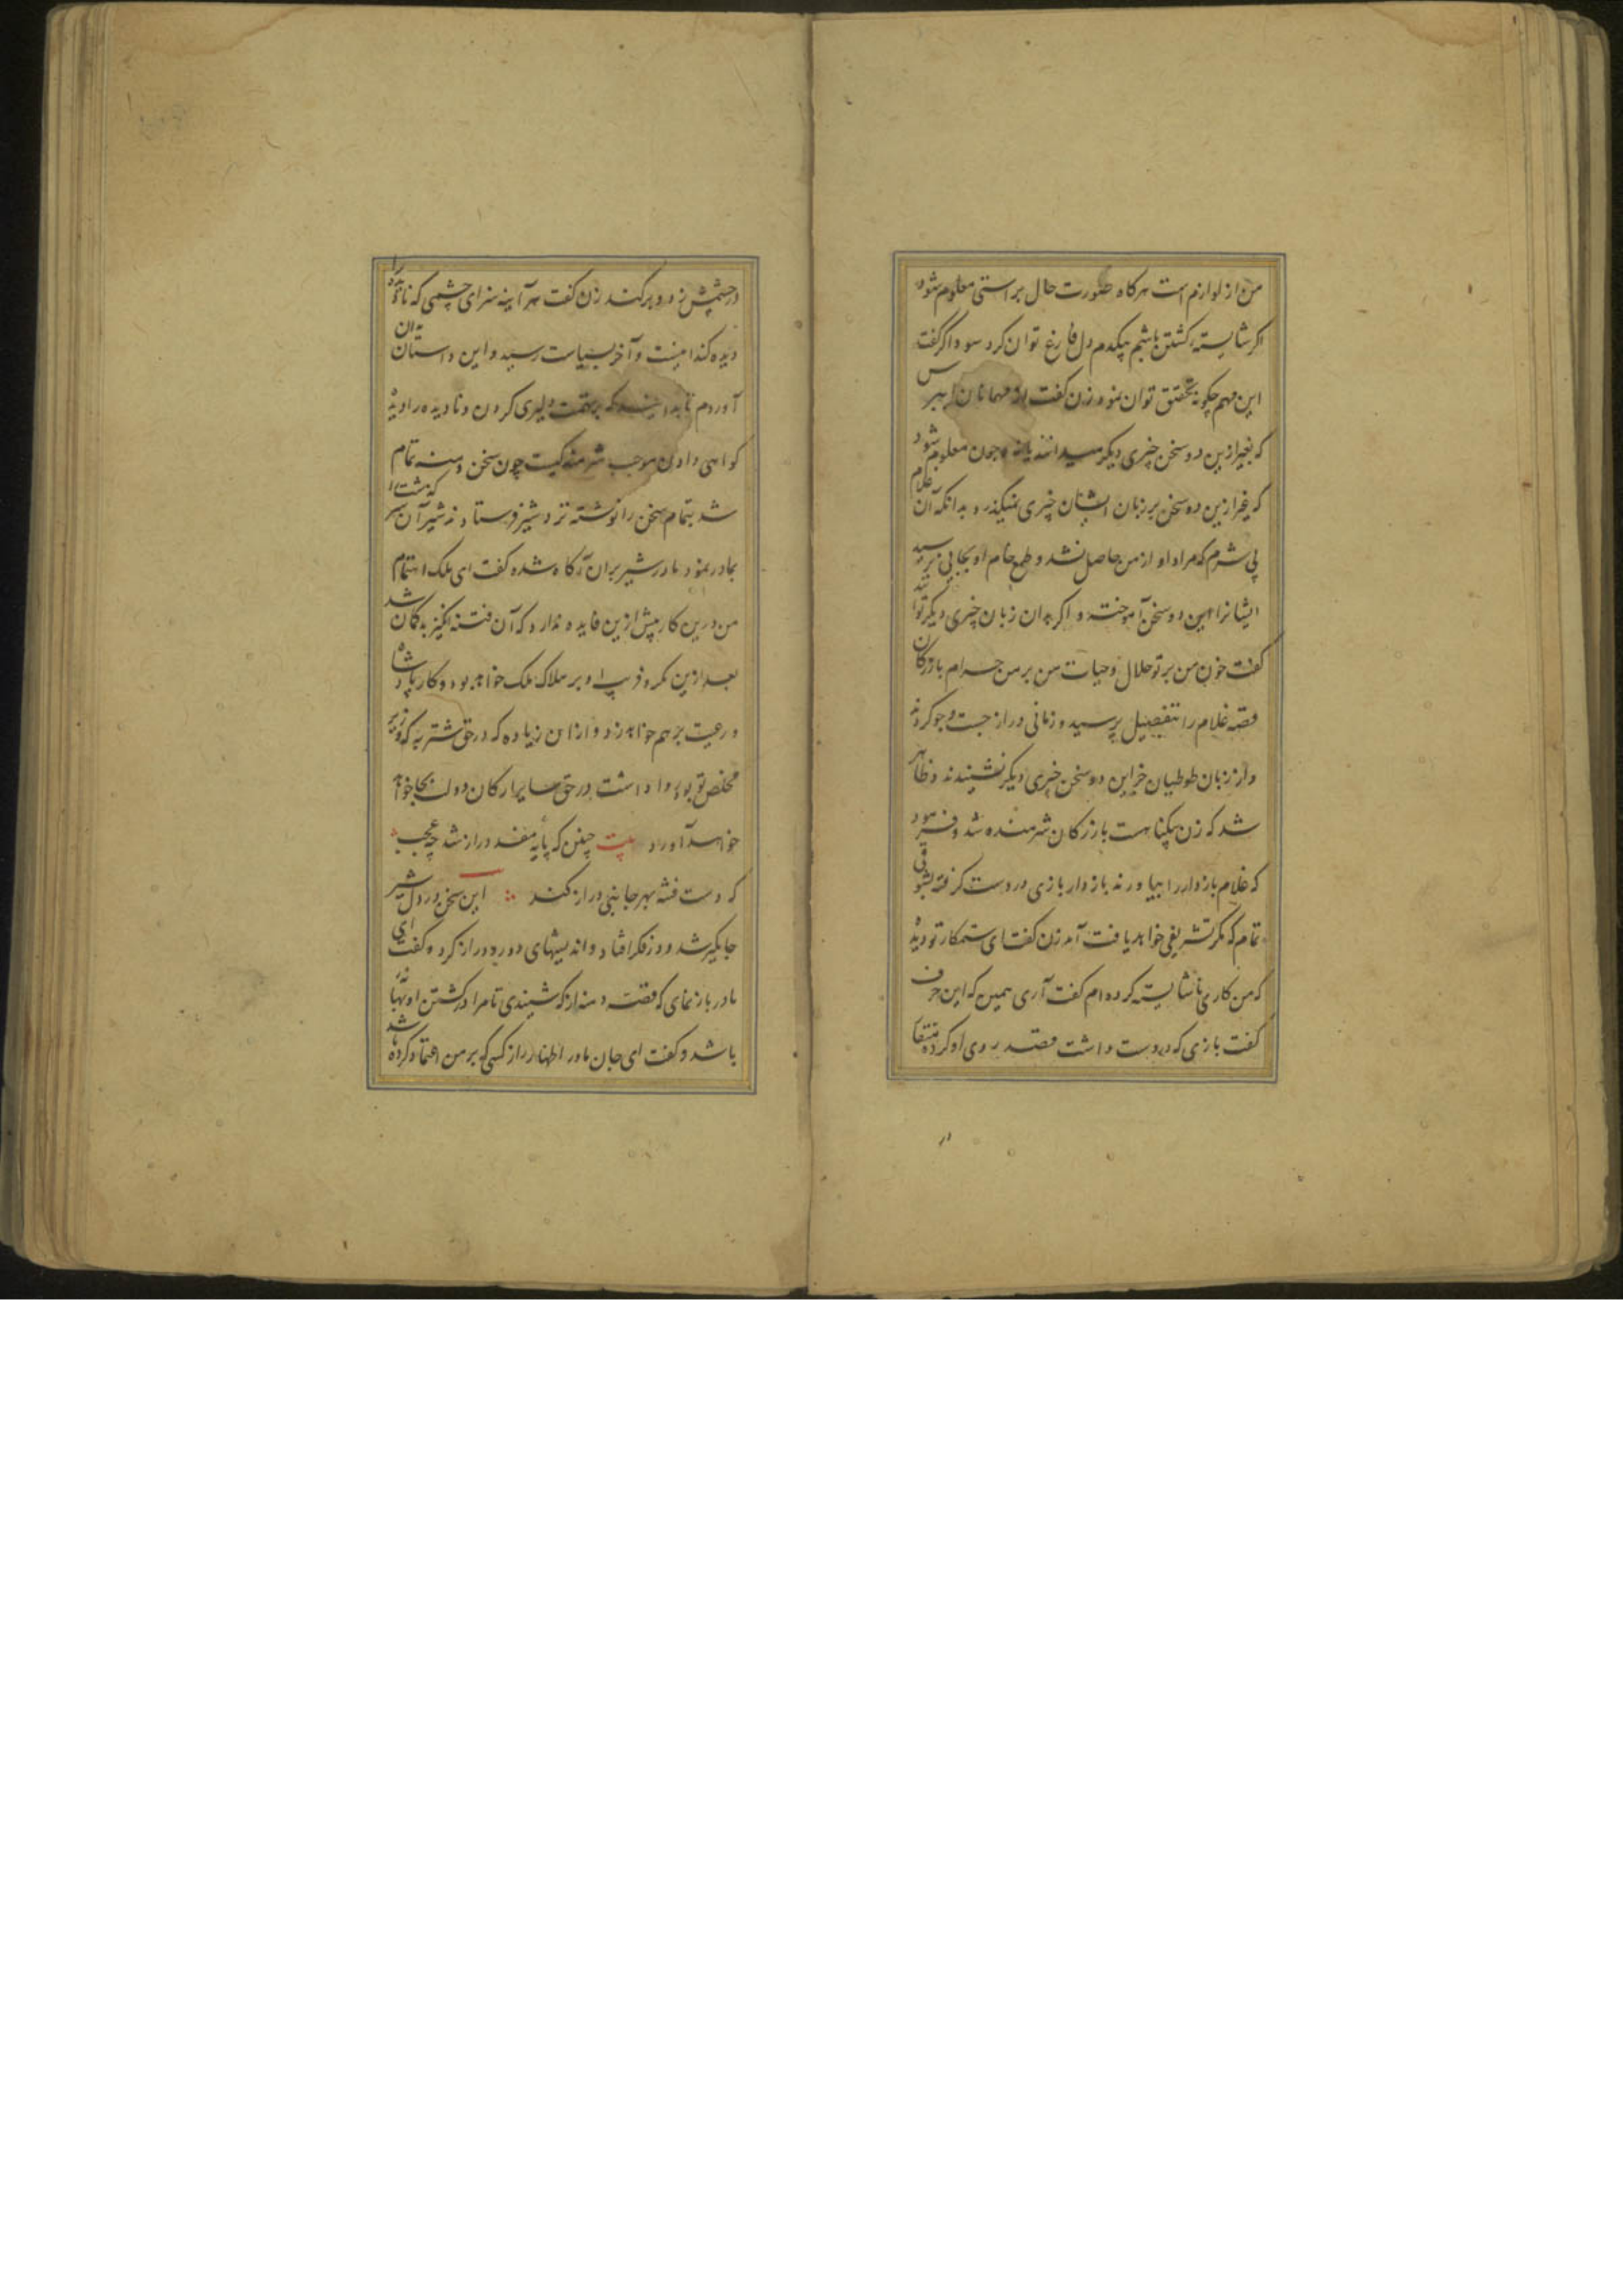 من از لوازم است هرگاه صورت حال براستی معلوم شود
اگر شایسته کشتن باشم بیکدم دل فارغ توان کرد سوداگر گفت
این مهم چگونه تحقیق توان نمود زن گفت از مهمانان بپرس
که بغیر ازین دو سخن چیزی دیگر میدانند یا نه چون معلوم شود
که غیر ازین دو سخن بر زبان ایشان چیزی نمیگذرد بدانکه آن غلام
بی شرم که مراد او از من حاصل نشد و طمع خام او بجایی نرسید
ایشانرا این دو سخن آموخته و اگر بدان زبان چیزی دیگر توانند
گفت خون من بر تو حلال و حیات من بر من حرام بازرگان
قصه غلام را بتفصیل پرسید و زمانی دراز جست و جو کردند
و از زبان طوطیان جز این دو سخن چیزی دیگر نشنیدند و ظاهر
شد که زن بیگناهست بازرگان شرمنده شد و فرمود
که غلام بازدار را بیاورند بازدار بازی در دست گرفته بشوقی
تمام که مگر تشریفی خواهد یافت آمد زن گفت ای ستمکار تو دیدی
که من کاری ناشایسته کرده ام گفت آری همین که این حرف
گفت بازی که در دست داشت قصد روی او کرده منقار
در چشمش زد و برکند زن گفت هر آینه سزای چشمی که نادیده را
دیده کند اینست و آخر بسیاست رسید و این داستان بدان
آوردم تا بدانند که بر تهمت دلیری کردن و نادیده را دیده
گواهی دادن موجب شرمندگیست چون سخن دمنه تمام
شد بتمام سخن را نوشته نزد شیر فرستادند شیر آن سرگذشت را
بمادر نمود مادر شیر بران آگاه شده گفت ای ملک اهتمام
من درین کار بیش ازین فایده ندارد که آن فتنه انگیز بدگمان شد
بعد ازین مکر و فریب او بر هلاک ملک خواهد بود و کار پادشاه
و رعیت برهم خواهد زد و ازان زیاده که در حق شتربه که وزیر
مخلص تو بود روا داشت در حق سایر ارکان دولت بجا خواهد
خواهد آورد بیت چنین که پایه مفسد دراز شد چه عجب
که دست فتنه بهر جانبی دراز کند این سخن در دل شیر
جایگیر شد و در فکر افتاد و اندیشهای دور و دراز کرد و گفت ای
مادر باز نمای که قصه دمنه از که شنیدی تا مرا در کشتن او بهانه
باشد و گفت ای جان مادر اظهار راز کسی که بر من اعتماد کرده باشد